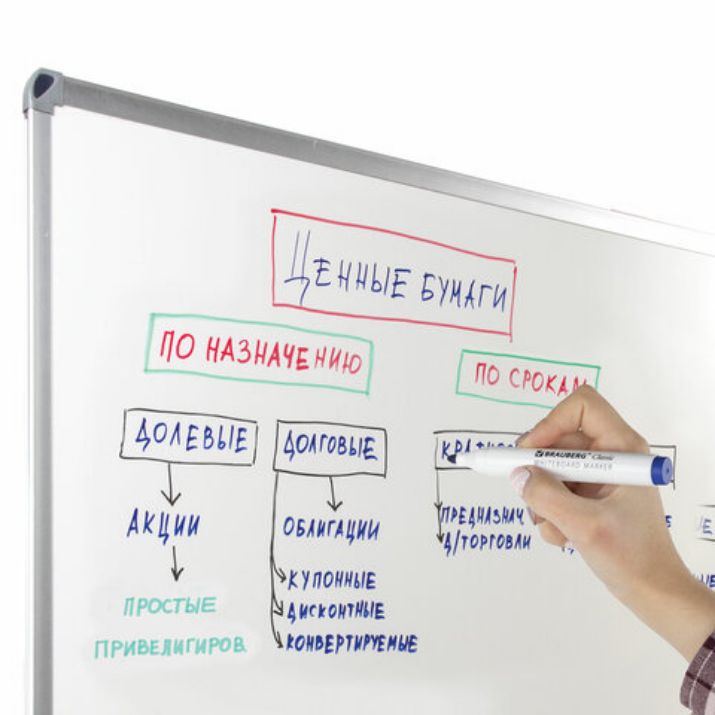 ЦЕННЫЕ БУМАГИ
ПО НАЗНАЧЕНИЮ
ПО СРОКАМ
ДОЛЕВЫЕ
ДОЛГОВЫЕ
АКЦИИ
ОБЛИГАЦИИ
ПРЕДНАЗНАЧ
Д/ТОРГОВЛИ
КУПОННЫЕ
ДИСКОНТНЫЕ
КОНВЕРТИРУЕМЫЕ
ПРОСТЫЕ
ПРИВЕЛИГИРОВ.
BRAUBERG Classic
WHITEBOARD MARKER